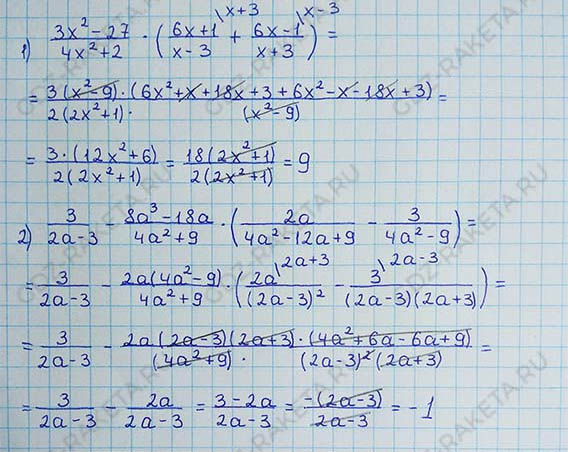 1) (3x² − 27)/(4x² + 2) · ((6x + 1)/(x − 3) \x+3 + (6x − 1)/(x + 3) \x−3) =
= 3(x² − 9) · (6x² + x + 18x + 3 + 6x² − x − 18x + 3)/(2(2x² + 1) · (x² − 9)) =
= 3 · (12x² + 6)/(2(2x² + 1)) = 18(2x² + 1)/(2(2x² + 1)) = 9
2) 3/(2a − 3) − (8a³ − 18a)/(4a² + 9) · (2a/(4a² − 12a + 9) − 3/(4a² − 9)) =
= 3/(2a − 3) − 2a(4a² − 9)/(4a² + 9) · (2a/(2a − 3)² \2a+3 − 3/((2a − 3)(2a + 3)) \2a−3) =
= 3/(2a − 3) − 2a(2a − 3)(2a + 3) · (4a² + 6a − 6a + 9)/((4a² + 9) · (2a − 3)²(2a + 3)) =
= 3/(2a − 3) − 2a/(2a − 3) = (3 − 2a)/(2a − 3) = −(2a − 3)/(2a − 3) = −1
GDZ-RAKETA.RU